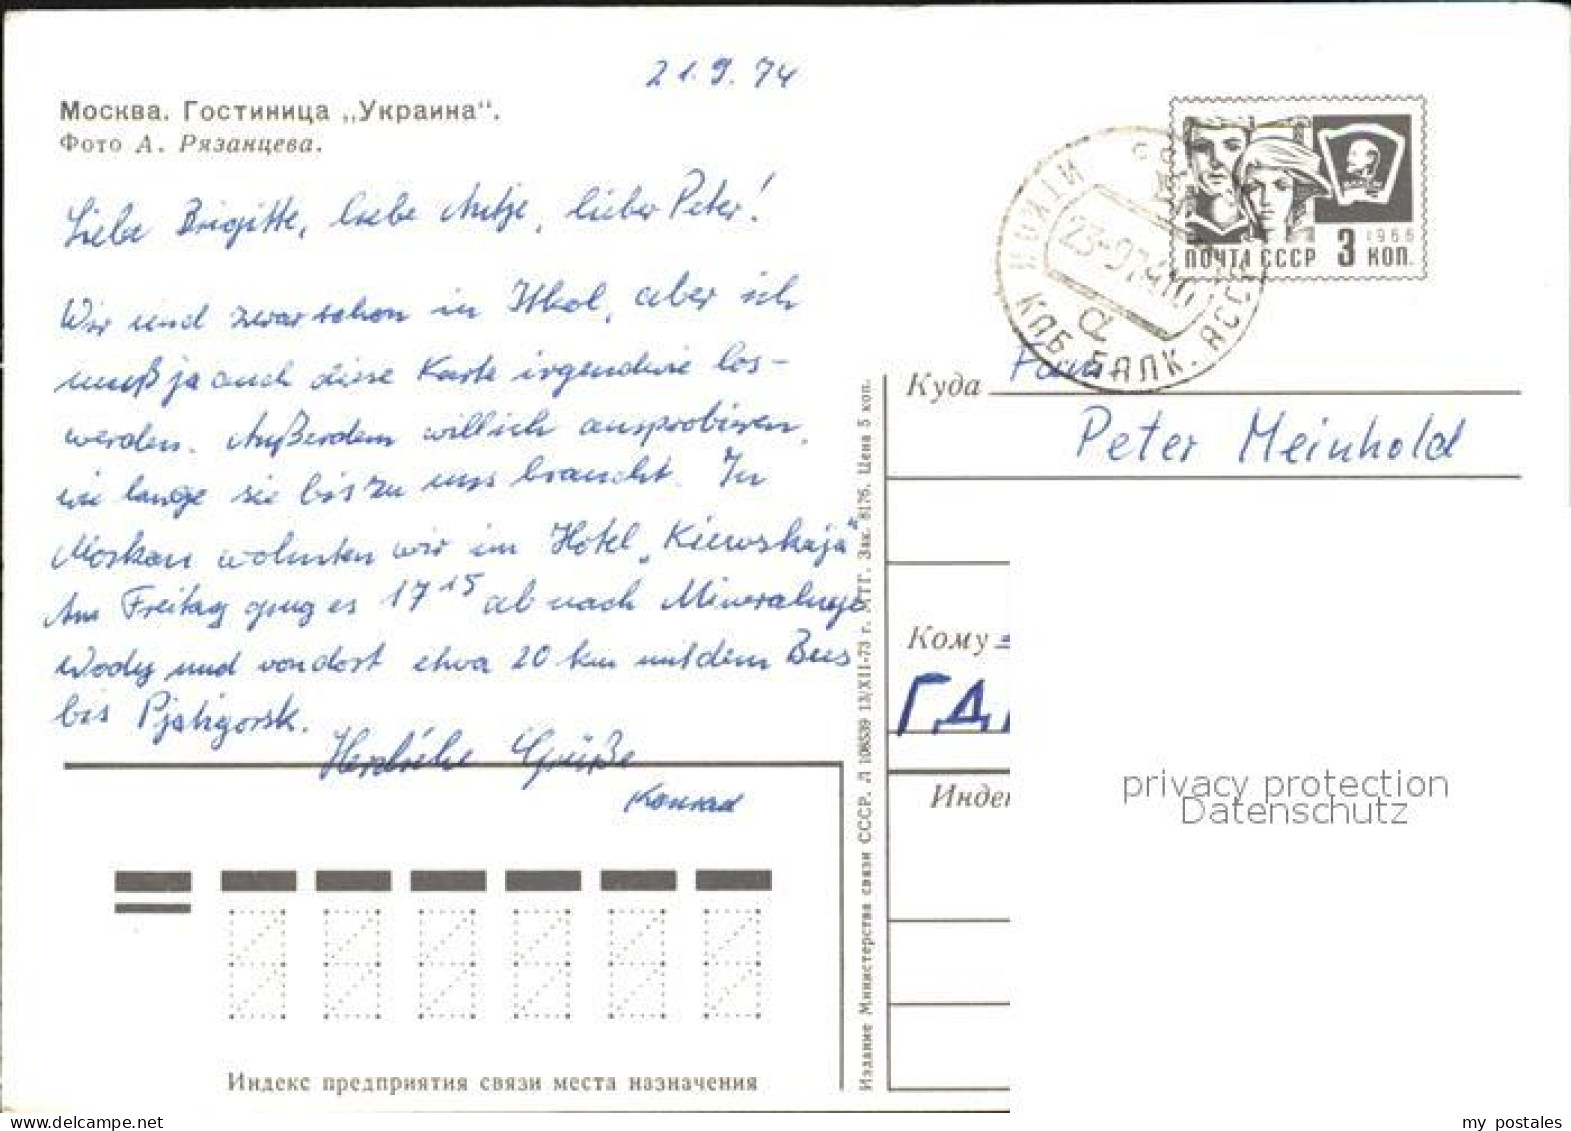 21.9.74
Москва. Гостиница „Украина“.
Фото А. Рязанцева.
Liebe Brigitte, liebe Antje, lieber Peter!
Wir sind zwar schon in Itkol, aber ich
muß ja auch diese Karte irgendwie los-
werden. Außerdem will ich ausprobieren,
wie lange sie bis zu uns braucht. In
Moskau wohnten wir im Hotel „Kiewskaja“
Am Freitag ging es 17 15 ab nach Mineralnyje
Wody und von dort etwa 20 km mit dem Bus
bis Pjatigorsk.
Herzliche Grüße
Konrad
Индекс предприятия связи места назначения
Издание Министерства связи СССР. Л 108539 13/XII-73 г. МТГ. Зак. 8176. Цена 5 коп.
ПОЧТА СССР 3 КОП.
1966
ИТКОЛ
23-974
КАБ. БАЛК. АСС
Куда Fam.
Peter Meinhold
Кому
ГД
Инде
privacy protection
Datenschutz
www.delcampe.net
my_postales